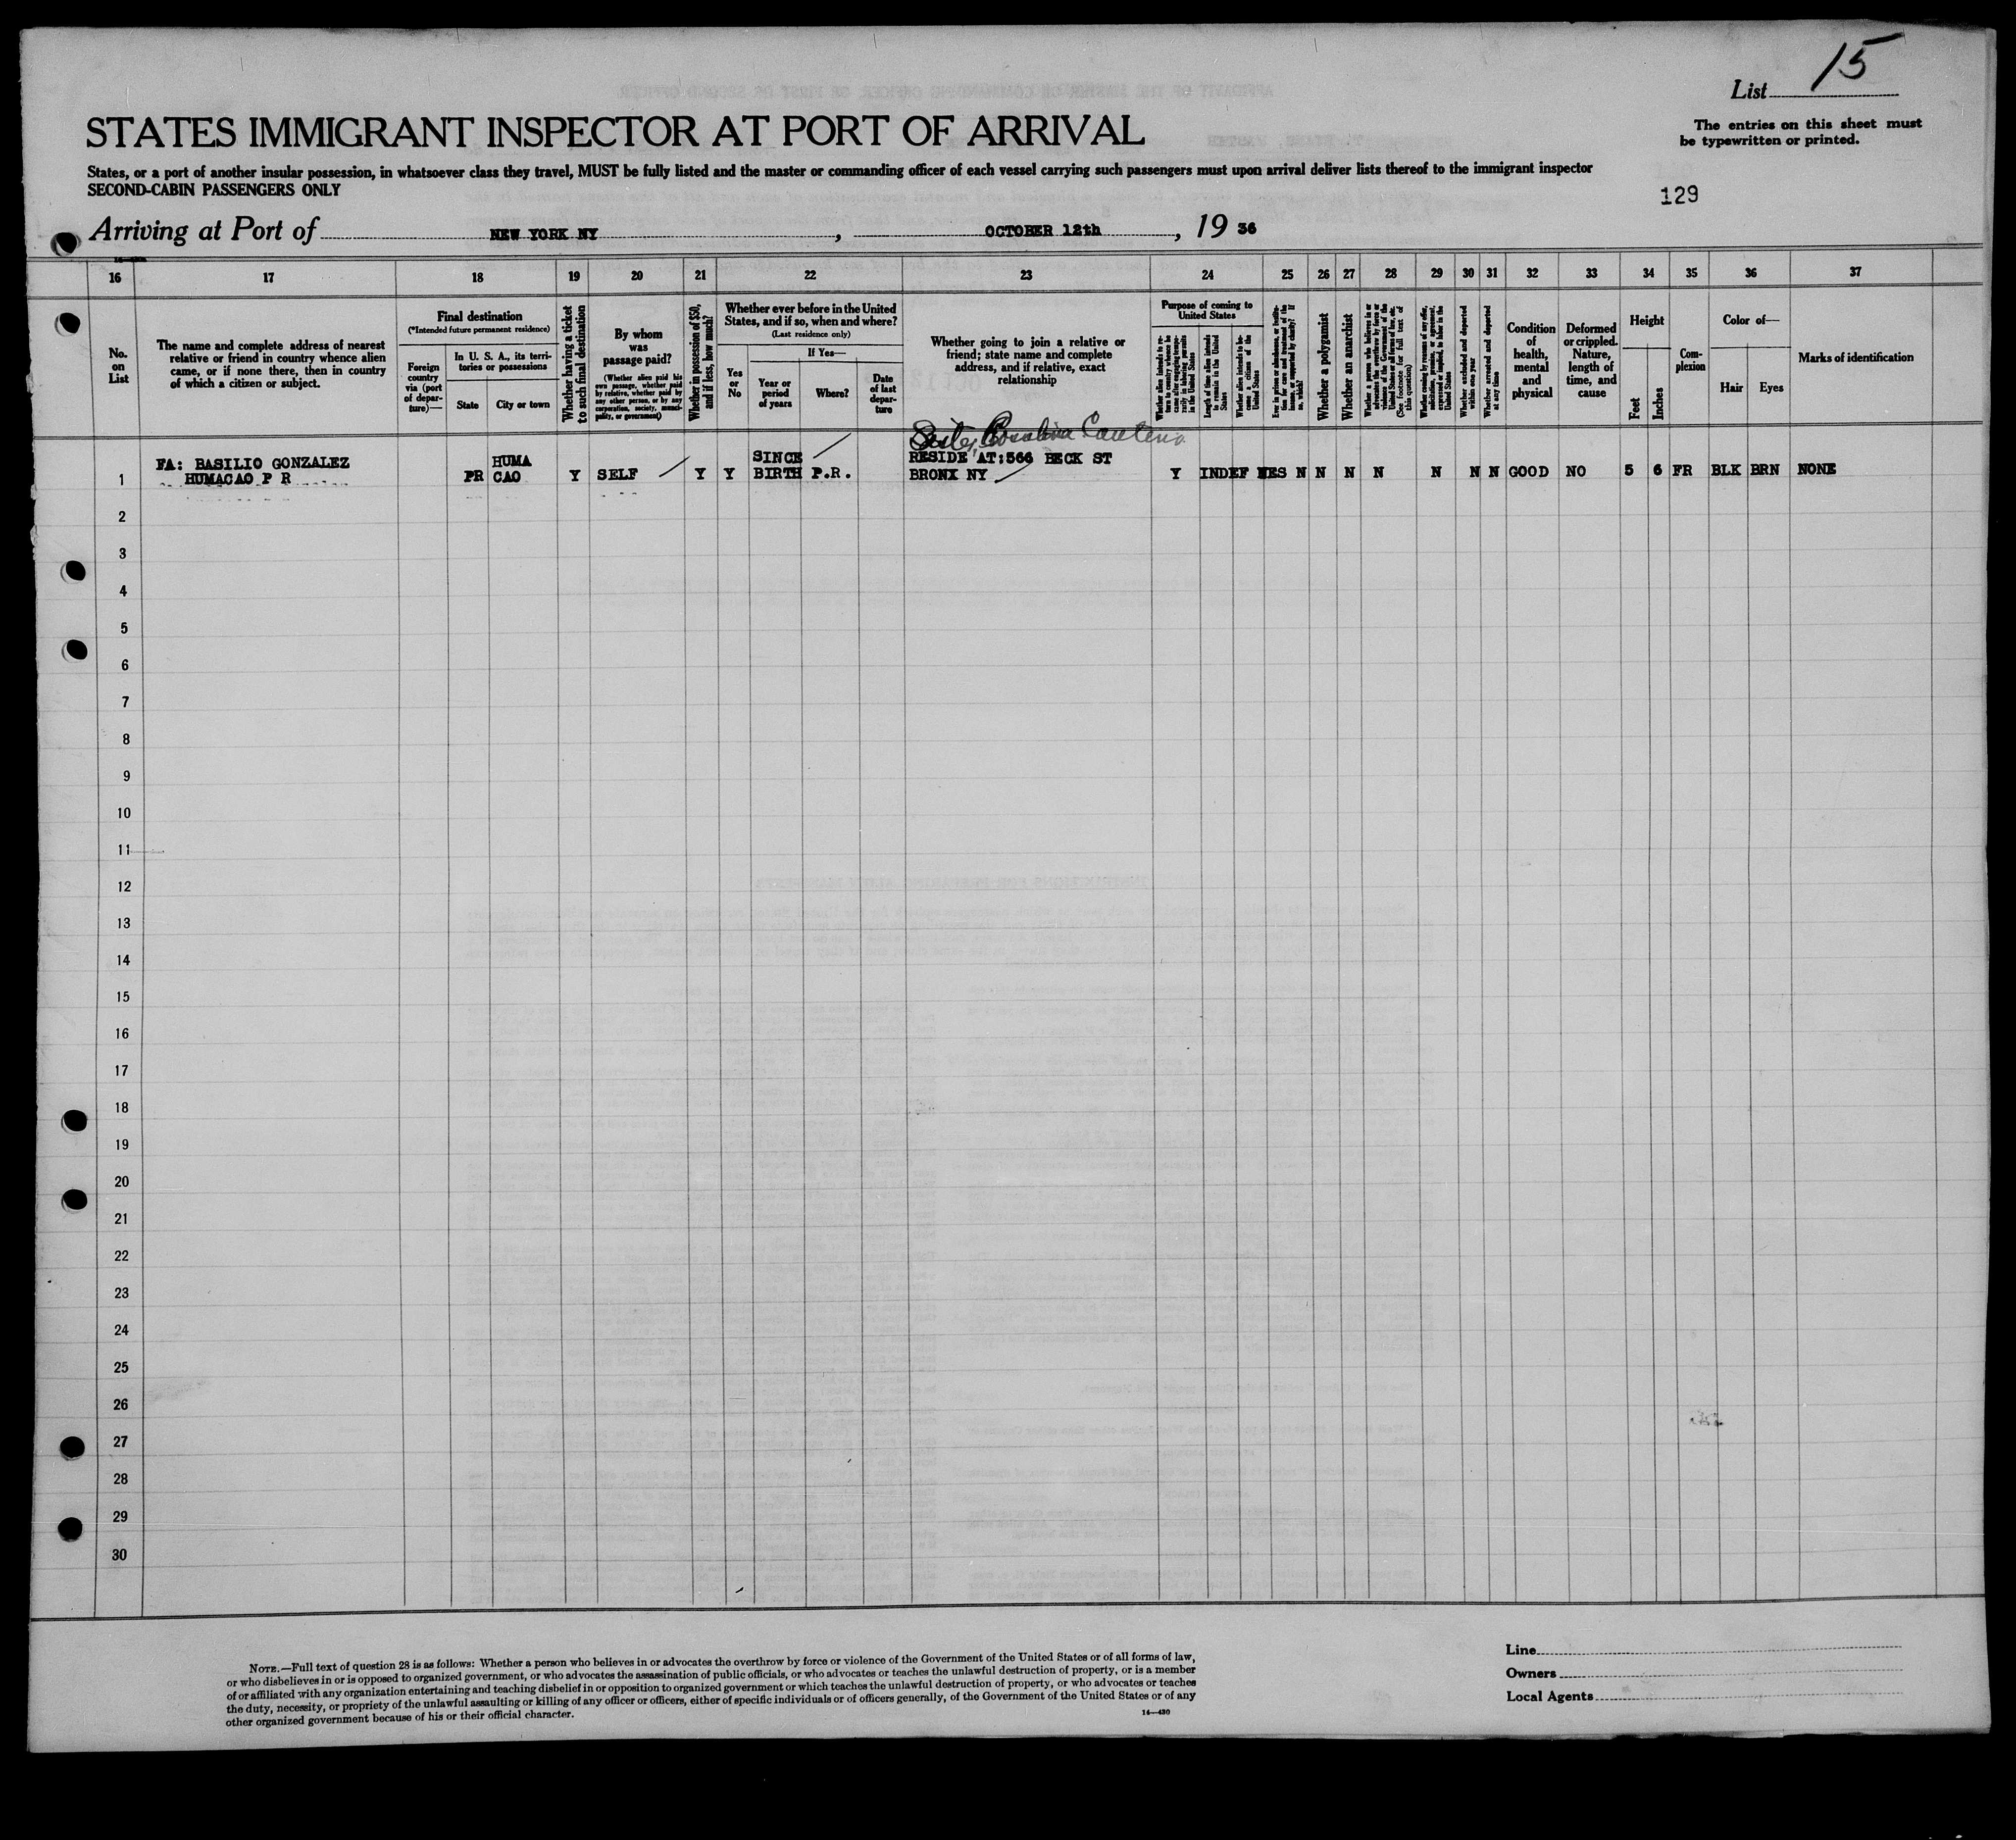 List 15
STATES IMMIGRANT INSPECTOR AT PORT OF ARRIVAL
The entries on this sheet must
be typewritten or printed.
States, or a port of another insular possession, in whatsoever class they travel, MUST be fully listed and the master or commanding officer of each vessel carrying such passengers must upon arrival deliver lists thereof to the immigrant inspector
SECOND-CABIN PASSENGERS ONLY
129
Arriving at Port of NEW YORK NY, OCTOBER 12th, 19 36
16 17 18 19 20 21 22 23 24 25 26 27 28 29 30 31 32 33 34 35 36 37
No.
on
List
The name and complete address of nearest
relative or friend in country whence alien
came, or if none there, then in country
of which a citizen or subject.
Final destination
(*Intended future permanent residence)
Foreign
country
via (port
of depar-
ture)—
In U. S. A., its terri-
tories or possessions
State
City or town
Whether having a ticket
to such final destination
By whom
was
passage paid?
(Whether alien paid his
own passage, whether paid
by relative, whether paid by
any other person, or by any
corporation, society, munici-
pality, or government)
Whether in possession of $50,
and if less, how much?
Whether ever before in the United
States, and if so, when and where?
(Last residence only)
Yes
or
No
If Yes—
Year or
period
of years
Where?
Date
of last
depar-
ture
Whether going to join a relative or
friend; state name and complete
address, and if relative, exact
relationship
Purpose of coming to
United States
Length of time alien intends
to remain in the United
States
Whether alien intends to be-
come a citizen of the
United States
Whether a polygamist
Whether an anarchist
Whether excluded and deported
within one year
Whether arrested and deported
at any time
Condition
of
health,
mental
and
physical
Deformed
or crippled.
Nature,
length of
time, and
cause
Height
Feet
Inches
Com-
plexion
Color of—
Hair
Eyes
Marks of identification
FA: BASILIO GONZALEZ HUMA SINCE RESIDE AT:566 BECK ST
1 HUMACAO P R PR CAO Y SELF Y Y BIRTH P.R. BRONX NY Y INDEF N N N N N N N GOOD NO 5 6 FR BLK BRN NONE
2
3
4
5
6
7
8
9
10
11
12
13
14
15
16
17
18
19
20
21
22
23
24
25
26
27
28
29
30
NOTE.—Full text of question 28 is as follows: Whether a person who believes in or advocates the overthrow by force or violence of the Government of the United States or of all forms of law,
or who disbelieves in or is opposed to organized government, or who advocates the assassination of public officials, or who advocates or teaches the unlawful destruction of property, or is a member
of or affiliated with any organization entertaining and teaching disbelief in or opposition to organized government or which teaches the unlawful destruction of property, or who advocates or teaches
the duty, necessity, or propriety of the unlawful assaulting or killing of any officer or officers, either of specific individuals or of officers generally, of the Government of the United States or of any
other organized government because of his or their official character.
16—430
Line
Owners
Local Agents